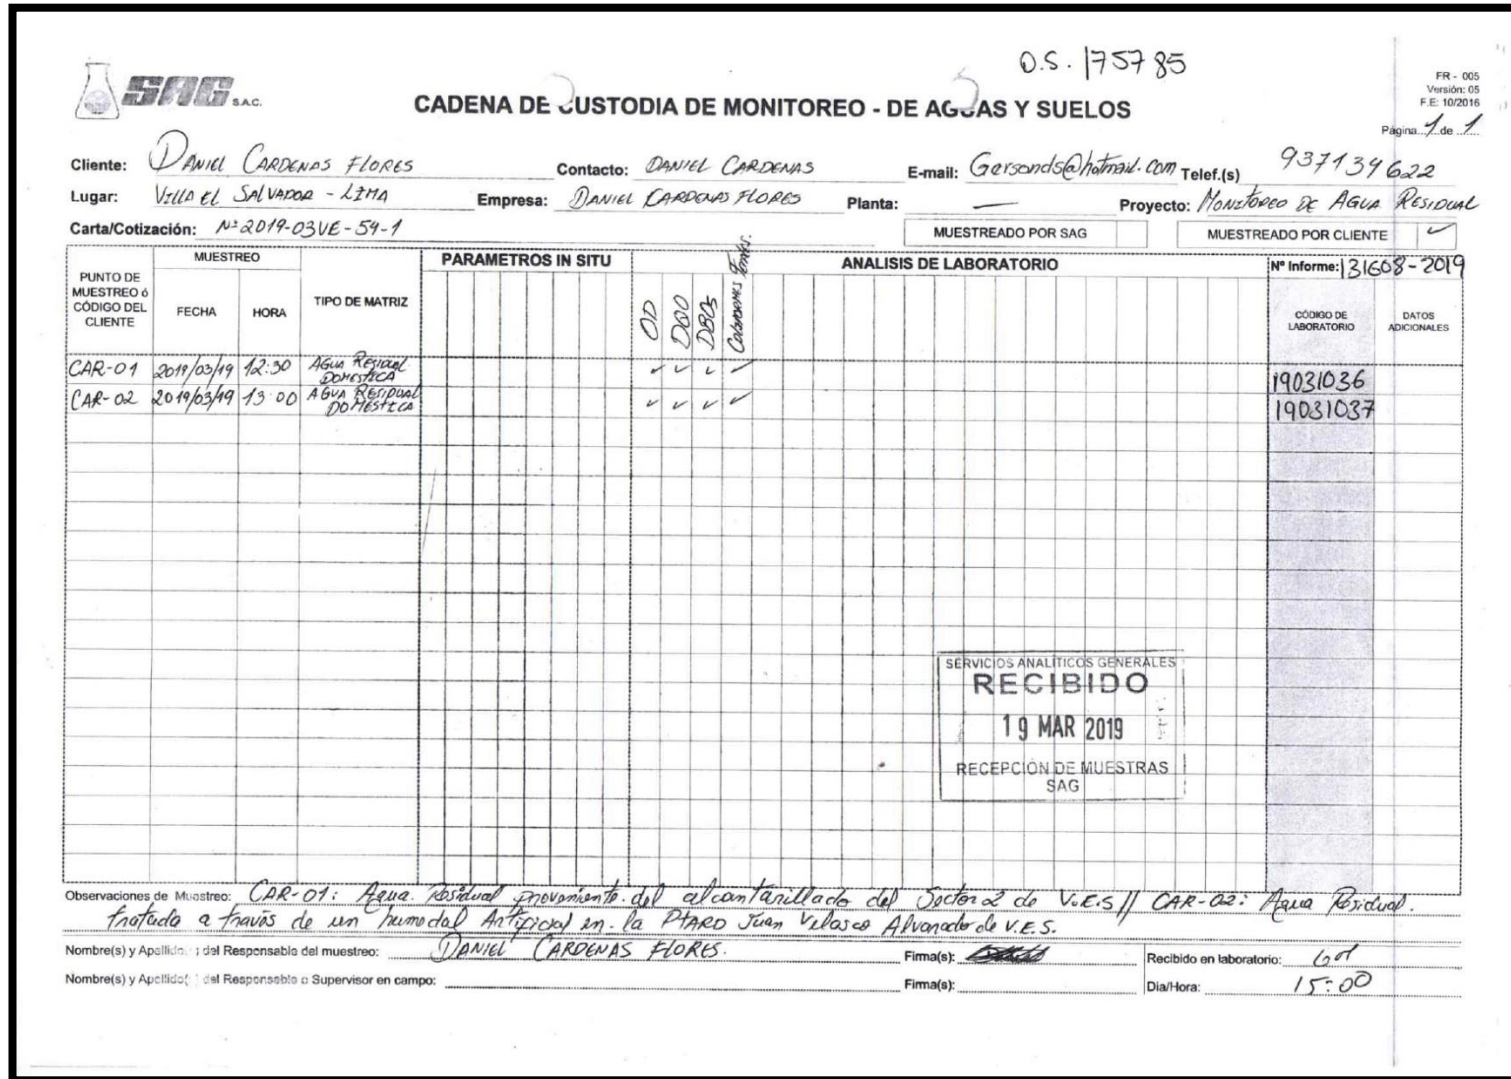 O.S. 175785
SAG S.A.C.
FR - 005
Versión: 05
F.E: 10/2016
CADENA DE CUSTODIA DE MONITOREO - DE AGUAS Y SUELOS
Página 1 de 1
Cliente: DANIEL CARDENAS FLORES Contacto: DANIEL CARDENAS E-mail: Gersonds@hotmail.com Telef.(s) 937139622
Lugar: VILLA EL SALVADOR - LIMA Empresa: DANIEL CARDENAS FLORES Planta: — Proyecto: MONITOREO DE AGUA RESIDUAL
Carta/Cotización: Nº 2019-03VE-59-1 MUESTREADO POR SAG MUESTREADO POR CLIENTE ✓
PUNTO DE MUESTREO ó CÓDIGO DEL CLIENTE MUESTREO FECHA HORA TIPO DE MATRIZ PARAMETROS IN SITU ANALISIS DE LABORATORIO Nº Informe: 131608-2019
OD DQO DBO5 CÓDIGO DE LABORATORIO DATOS ADICIONALES
CAR-01 2019/03/19 12:30 AGUA RESIDUAL DOMESTICA ✓ ✓ ✓ ✓ 19031036
CAR-02 2019/03/19 13:00 AGUA RESIDUAL DOMESTICA ✓ ✓ ✓ ✓ 19031037
SERVICIOS ANALÍTICOS GENERALES
RECIBIDO
19 MAR 2019
RECEPCIÓN DE MUESTRAS
SAG
Observaciones de Muestreo: CAR-01: Agua Residual proveniente del alcantarillado del Sector 2 de V.E.S // CAR-02: Agua Residual.
tratada a través de un humedal Artificial en la PTARD Juan Velasco Alvarado de V.E.S.
Nombre(s) y Apellido(s) del Responsable del muestreo: DANIEL CARDENAS FLORES. Firma(s): Recibido en laboratorio:
Nombre(s) y Apellido(s) del Responsable o Supervisor en campo: Firma(s): Dia/Hora: 15:00